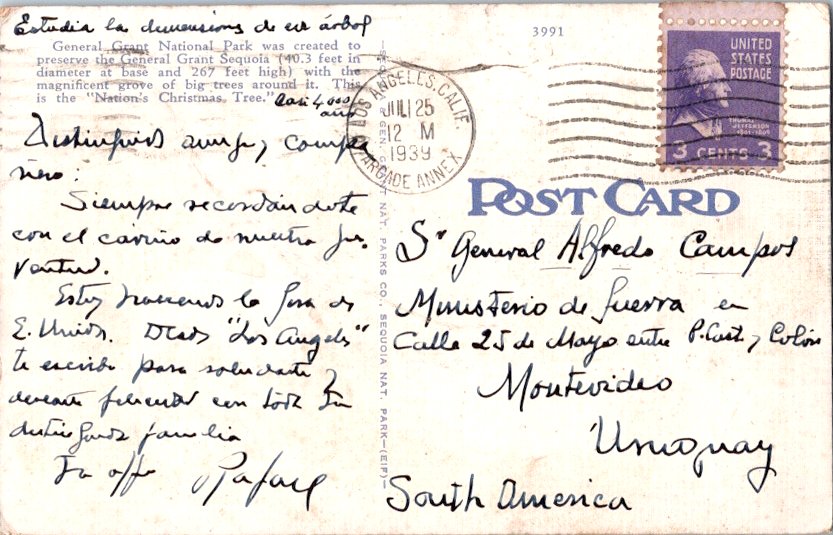 Estudia las dimensiones de este árbol
General Grant National Park was created to
preserve the General Grant Sequoia (40.3 feet in
diameter at base and 267 feet high) with the
magnificent grove of big trees around it. This
is the "Nation's Christmas Tree."
Casi 4000
años
Distinguido amigo y compa-
ñero:
Siempre recordándote
con el cariño de nuestra ju-
ventud.
Estoy haciendo la
E. Unidos. Desde "Los Angeles"
te escribo para saludarte y
desearte felicidad con toda tu
distinguida familia
Tu affo Rafael
GEN. GRANT NAT. PARKS CO., SEQUOIA NAT. PARK—(EIF)—
3991
LOS ANGELES, CALIF.
JUL 25
12 M
1939
ARCADE ANNEX
UNITED
STATES
POSTAGE
THOMAS
JEFFERSON
1801-1809
3 CENTS 3
POST CARD
Sr General Alfredo Campos
Ministerio de Guerra en
Calle 25 de Mayo entre P. Cast. y Colón
Montevideo
Uruguay
South America